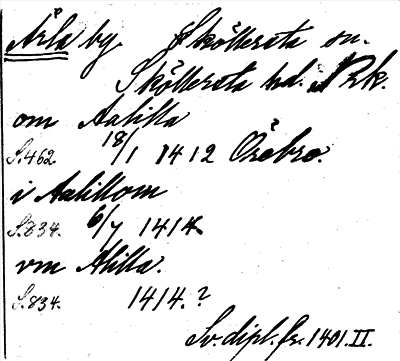 Årla by. Sköllersta sn.
Sköllersta hd. Nrk.
om Aalilla
S. 462. 18/1 1412 Örebro.
i Aalillom
S. 834. 6/7 1414
vm Alilla.
S. 834. 1414.?
Sv. dipl. fr. 1401. II.